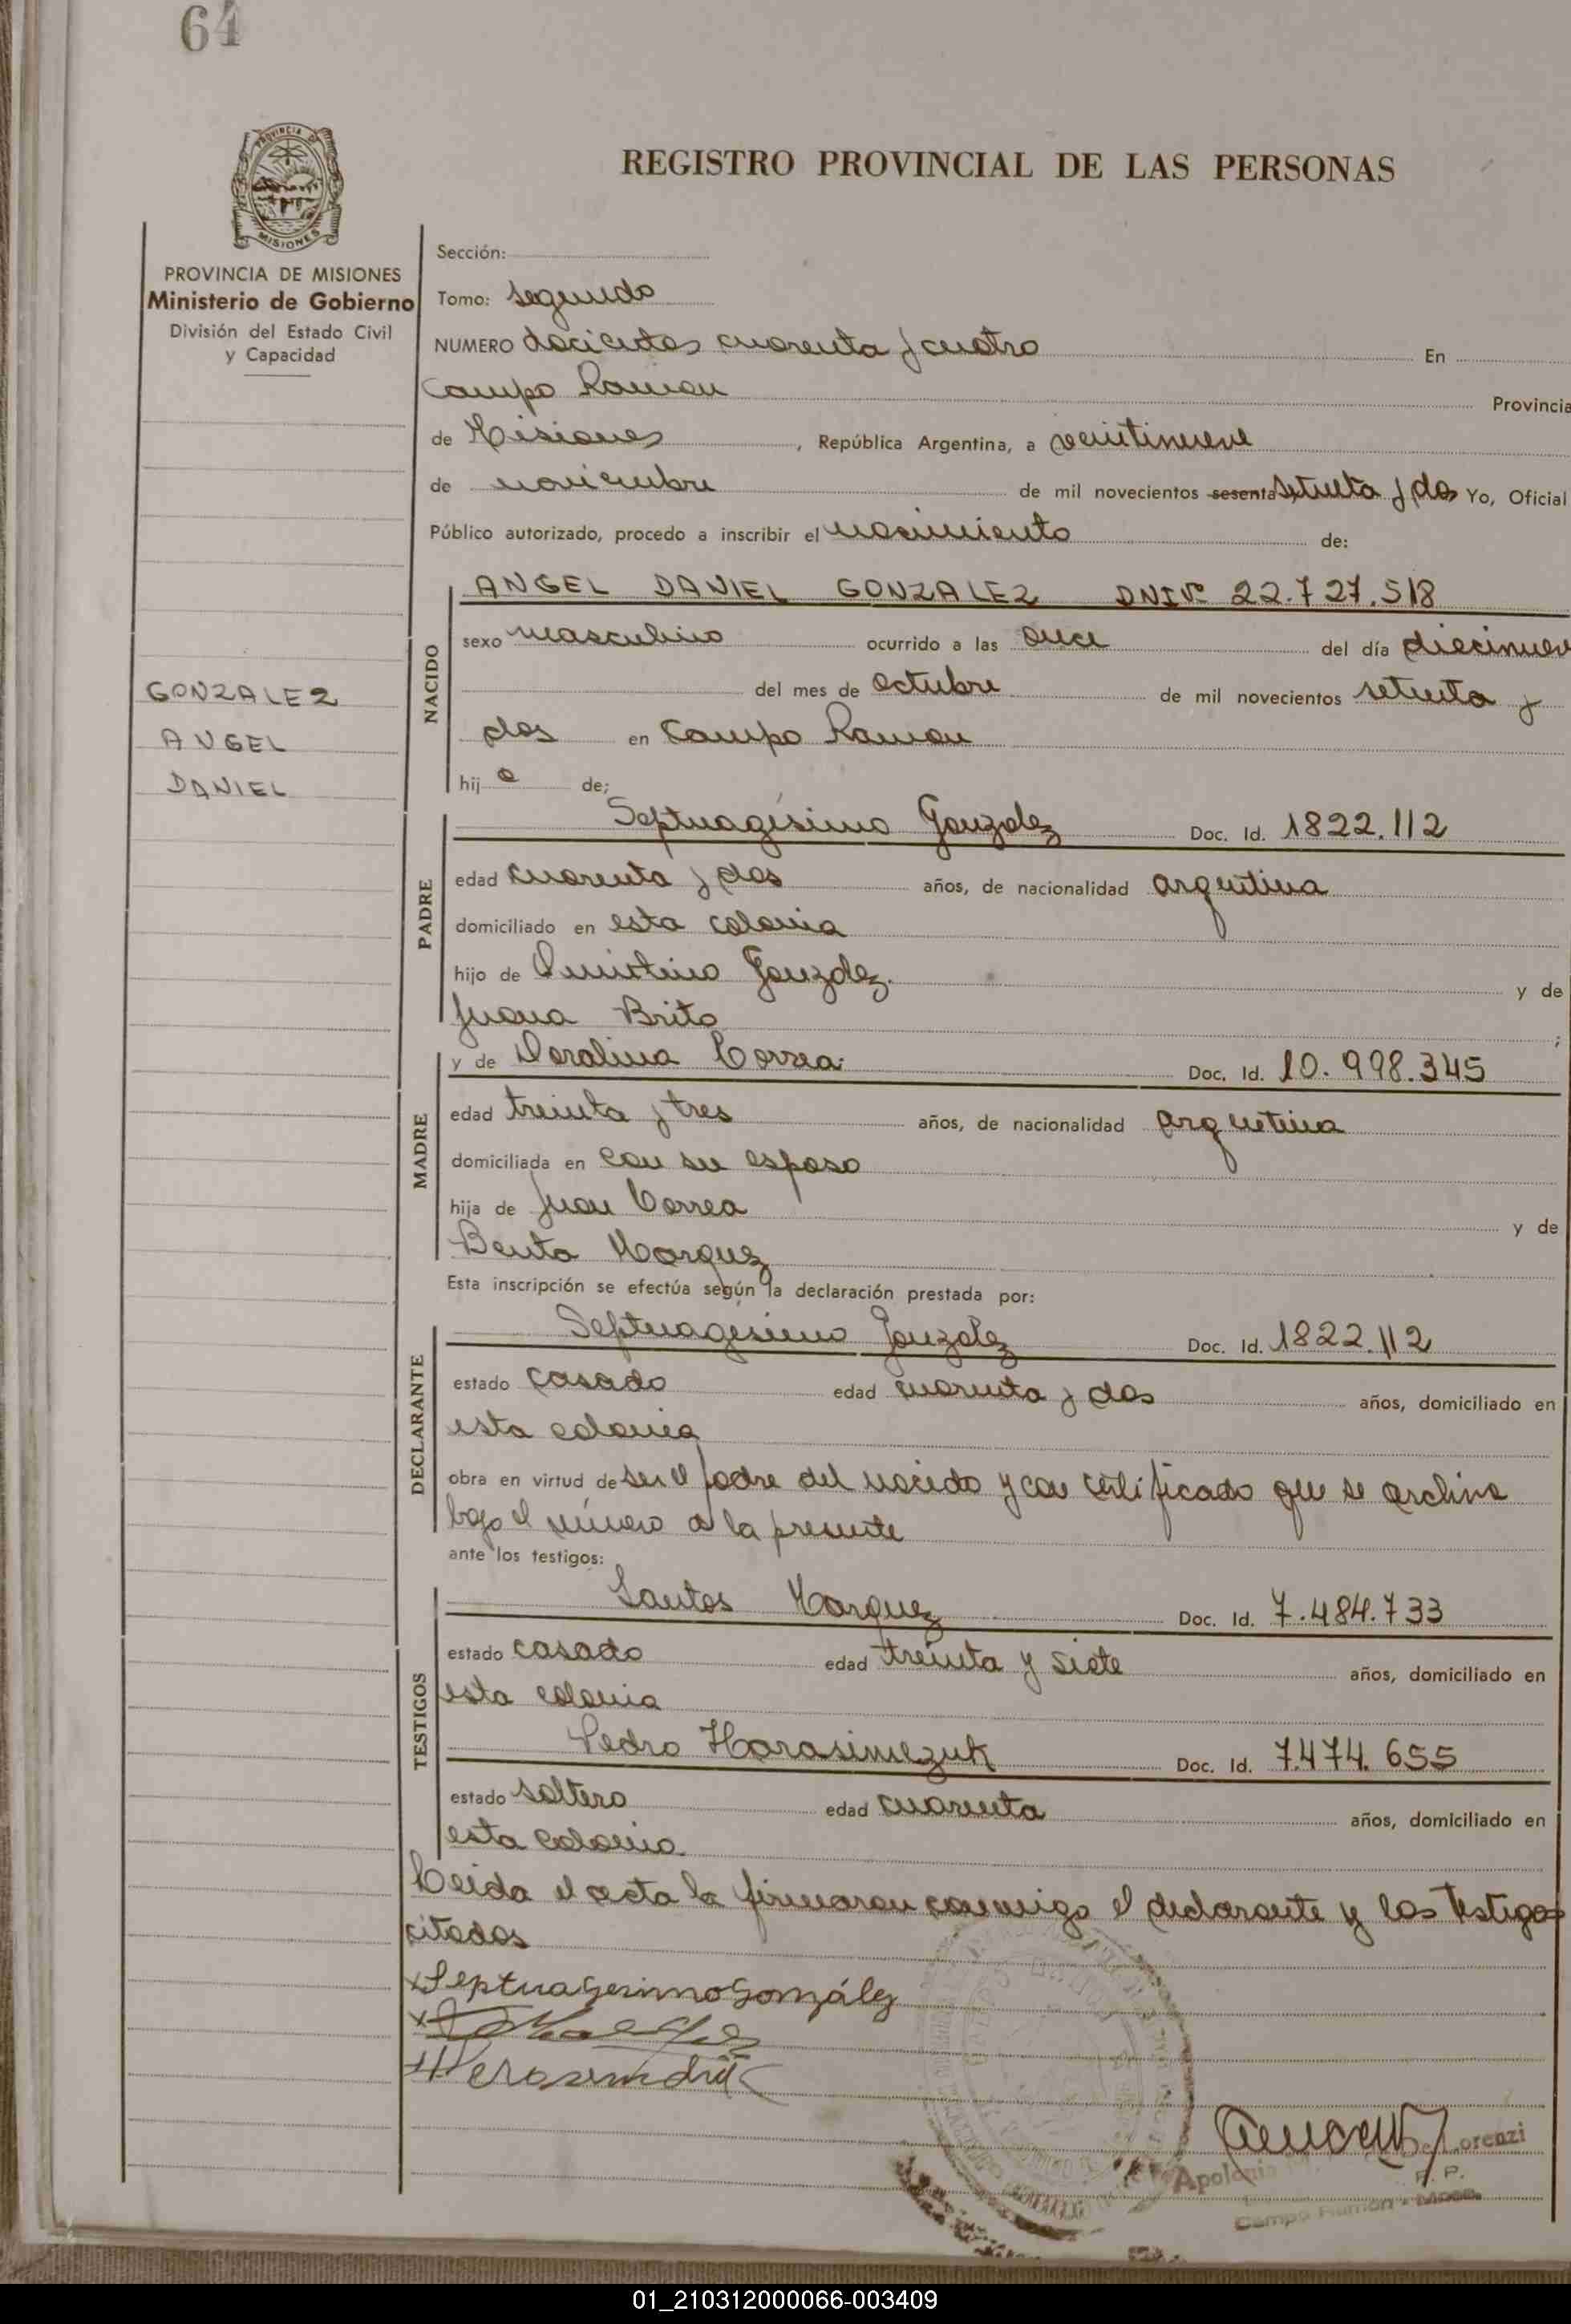 64
REGISTRO PROVINCIAL DE LAS PERSONAS
PROVINCIA DE MISIONES
MISIONES
PROVINCIA DE MISIONES
Ministerio de Gobierno
División del Estado Civil
y Capacidad
GONZALEZ
ANGEL
DANIEL
Sección:
Tomo: segundo
NUMERO docientos cuarenta y cuatro En
Campo Ramon Provincia
de Misiones, República Argentina, a veintinueve
de noviembre de mil novecientos sesenta setenta y dos Yo, Oficial
Público autorizado, procedo a inscribir el nacimiento de:
NACIDO
ANGEL DANIEL GONZALEZ DNI Nº 22.727.518
sexo masculino ocurrido a las once del día diecinueve
del mes de octubre de mil novecientos setenta y
dos en Campo Ramon
hijo de;
PADRE
Septuagésimo Gonzalez Doc. Id. 1822.112
edad cuarenta y dos años, de nacionalidad argentina
domiciliado en esta colonia
hijo de Quintino Gonzalez. y de
Juana Brito ;
MADRE
y de Doralina Correa. Doc. Id. 10.998.345
edad treinta y tres años, de nacionalidad argentina
domiciliada en con su esposo
hija de Juan Correa y de
Benta Marquez
Esta inscripción se efectúa según la declaración prestada por:
DECLARANTE
Septuagesimo Gonzalez Doc. Id. 1822.112
estado casado edad cuarenta y dos años, domiciliado en
esta colonia
obra en virtud de ser el padre del nacido y con certificado que se archiva
bajo el número a la presente
ante los testigos:
TESTIGOS
Santos Marquez Doc. Id. 7.484.733
estado casado edad treinta y siete años, domiciliado en
esta colonia
Pedro Harasimczuk Doc. Id. 7.474.655
estado soltero edad cuarenta años, domiciliado en
esta colonia
Leida el acta la firmaron conmigo el declarante y los testigos
citados
Septuagesimo González
Apolonio Lorenzi
Campo Ramon - Mnes.
01_210312000066-003409